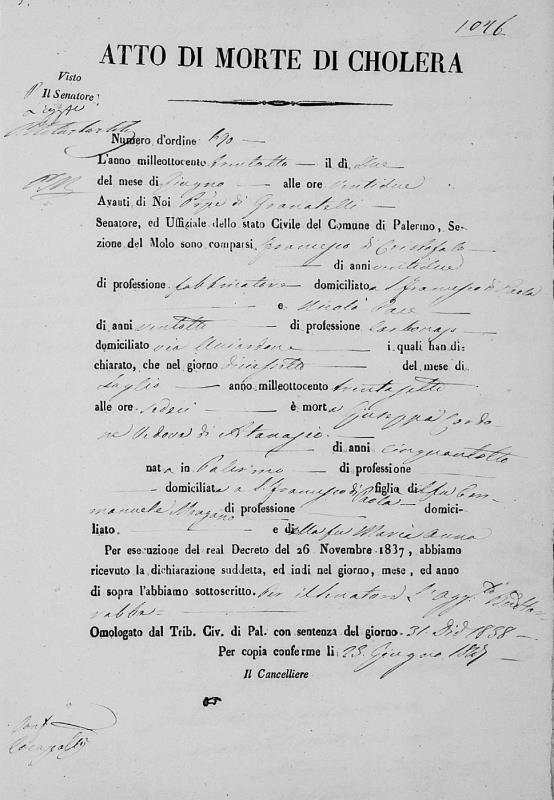 1046
ATTO DI MORTE DI CHOLERA
Visto
Il Senatore
Numero d'ordine 690
L'anno milleottocento trentotto il dì due
del mese di Giugno alle ore ventidue
Avanti di Noi Pñpe di Granatelli
Senatore, ed Uffiziale dello stato Civile del Comune di Palermo, Se-
zione del Molo sono comparsi Francesco di Cristofalo
di anni ventidue
di professione fabbricatore domiciliato a S. Francesco di Paola
e Nicolò Pace
di anni ventotto di professione
domiciliato via i quali han di-
chiarato, che nel giorno diciasette del mese di
Luglio anno milleottocento trentasette
alle ore sedeci è morta Giuseppa Cordo
ne Vedova di Atanasio
di anni cinquantotto
nata in Palermo di professione
domiciliata a S. Francesco di Paola figlia di fu Em-
manuele di professione domici-
liato e della fu Maria Anna
Per esecuzione del real Decreto del 26 Novembre 1837, abbiamo
ricevuto la dichiarazione suddetta, ed indi nel giorno, mese, ed anno
di sopra l'abbiamo sottoscritto. Per il Senatore L'Agg.to
Omologato dal Trib. Civ. di Pal. con sentenza del giorno 31 1838
Per copia conforme li 23 Giugno
Il Cancelliere